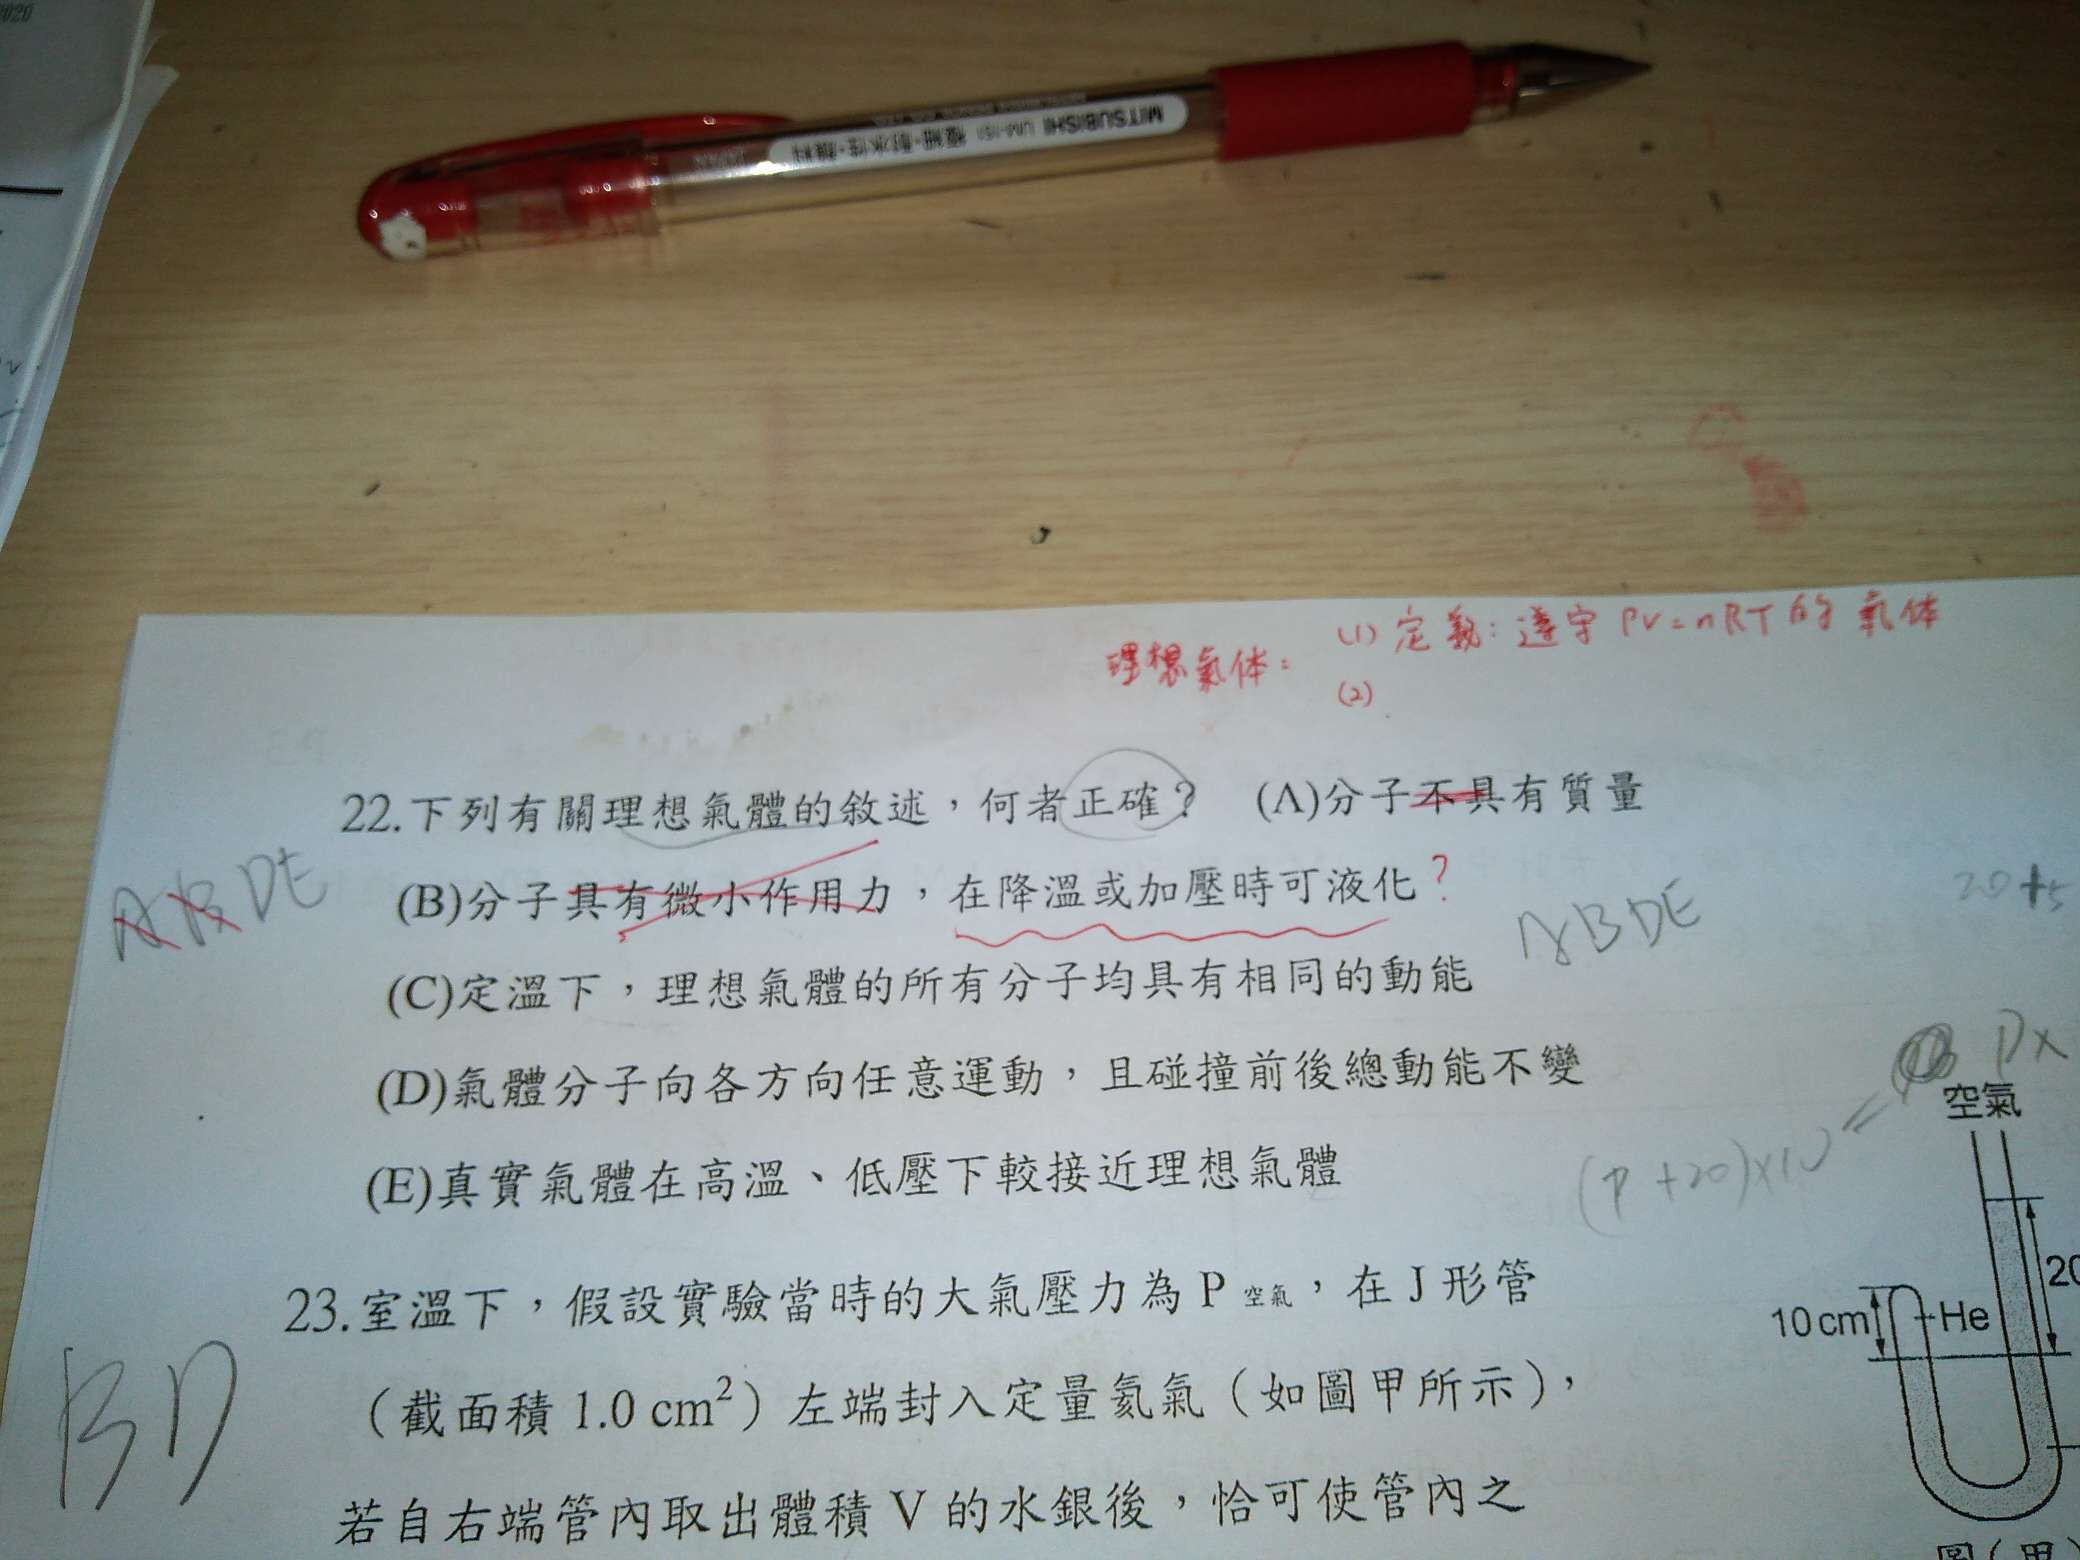 2020
MITSUBISHI UM-151 極細·耐水性·顏料
理想氣体: (1) 定義: 遵守 PV=nRT 的氣体
(2)
22.下列有關理想氣體的敘述，何者正確？ (A)分子不具有質量
ABDE
(B)分子具有微小作用力，在降溫或加壓時可液化?
ABDE
20+5
(C)定溫下，理想氣體的所有分子均具有相同的動能
(D)氣體分子向各方向任意運動，且碰撞前後總動能不變
PX
空氣
(E)真實氣體在高溫、低壓下較接近理想氣體
(P+20)×10=
23.室溫下，假設實驗當時的大氣壓力為 P 空氣，在 J 形管
20
10 cm
He
BD
（截面積 1.0 cm²）左端封入定量氦氣（如圖甲所示），
若自右端管內取出體積 V 的水銀後，恰可使管內之
圖(甲)